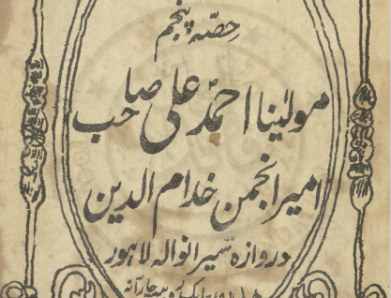 حصّہ پنجم
مولینا احمد علی صاحب
امیر انجمن خدام الدین
دروازہ شیرانوالہ لاہور